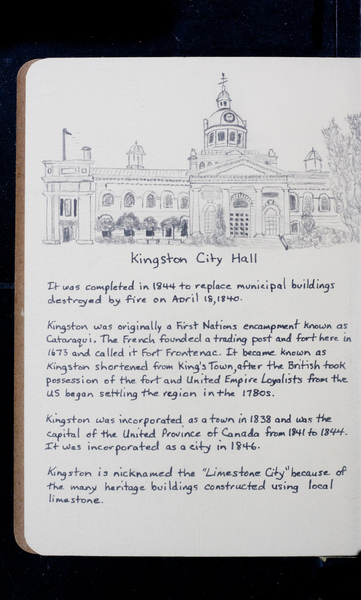 Kingston City Hall
It was completed in 1844 to replace municipal buildings
destroyed by fire on April 18, 1840.
Kingston was originally a First Nations encampment known as
Cataraqui. The French founded a trading post and fort here in
1673 and called it Fort Frontenac. It became known as
Kingston shortened from King's Town, after the British took
possession of the fort and United Empire Loyalists from the
US began settling the region in the 1780s.
Kingston was incorporated as a town in 1838 and was the
capital of the United Province of Canada from 1841 to 1844.
It was incorporated as a city in 1846.
Kingston is nicknamed the "Limestone City" because of
the many heritage buildings constructed using local
limestone.